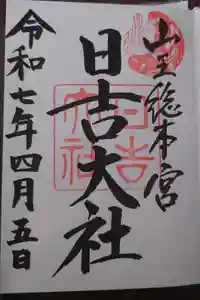 山王総本宮
日吉大社
令和七年四月五日
日吉大社